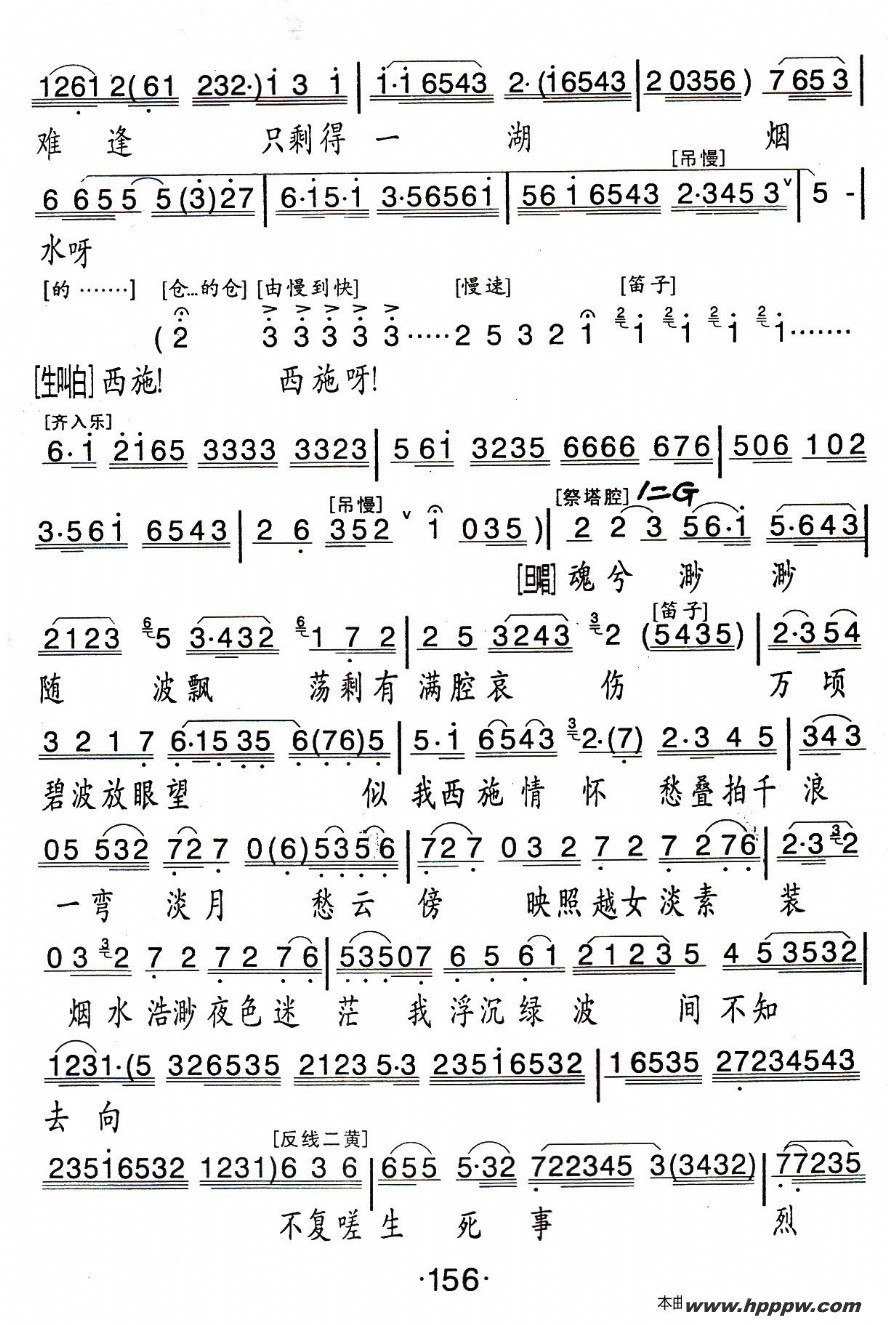 1261 2(61 232·)i 3 i | i·i 6543 2·(i6543 | 2 0356) 7653 |
难 逢 只剩得一 湖 烟
[吊慢]
6 655 5(3)27 | 6·i5·i 3·56561 | 56i6543 2·3453 ∨ | 5 - |
水呀
[的 ·······] [仓…的仓] [由慢到快] [慢速] [笛子]
(2 3 3 3 3 3 ····· 2 5 3 2 i 2i 2i 2i 2i ·······
[生叫白] 西施! 西施呀!
[齐入乐]
6·i 2i65 3333 3323 | 56i 3235 6666 676 | 506 102
3·56i 6543 | 2 6 352 ∨ i 035 ) | 2 2 3 56·i 5·643 |
[吊慢] [祭塔腔] 1=G
[旦唱] 魂兮 渺 渺
2123 5 3·432 1 7 2 | 2 5 3243 2 (5435) | 2·354
[笛子]
随 波飘 荡剩有满腔哀 伤 万顷
3 2 1 7 6·1535 6(76)5 | 5·i 6543 2·(7) 2·3 4 5 | 343
碧波放眼望 似我西施情 怀 愁叠拍千浪
05 532 727 0(6)5356 | 727 032 72 7276 | 2·3 2
一弯 淡月 愁云傍 映照越女淡素 装
03 2 72 7276 | 53507 65 61 2123 5 4 53532 |
烟水浩渺夜色迷 茫 我浮沉绿 波 间不知
1231·(5 326535 2123 5·3 235i6532 | 16535 27234543
去向
[反线二黄]
235i6532 1231)6 3 6 | 655 5·32 722345 3(3432) | 77235
不复嗟生 死 事 烈
·156·
本曲 www.hpppw.com